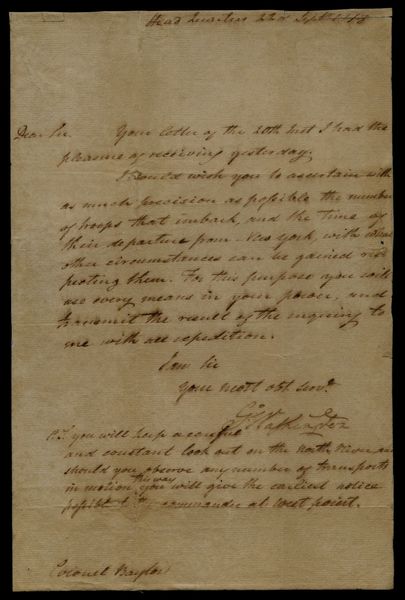 Head Quarters 22d Sept 1778
Dear Sir. Your letter of the 20th Inst I had the
pleasure of receiving yesterday.
I would wish you to ascertain with
as much precision as possible the number
of troops that imbark, and the time of
their departure from New York, with what
other circumstances can be gained res-
pecting them. For this purpose you will
use every means in your power, and
transmit the result of the inquiry to
me with all expedition.
I am Sir
Your most obt. servt.
Go: Washington
P.S. you will keep a careful
and constant look out on the North River and
should you observe any number of transports
in motion this way you will give the earliest notice
possible to the commander at West point.
Colonel Baylor